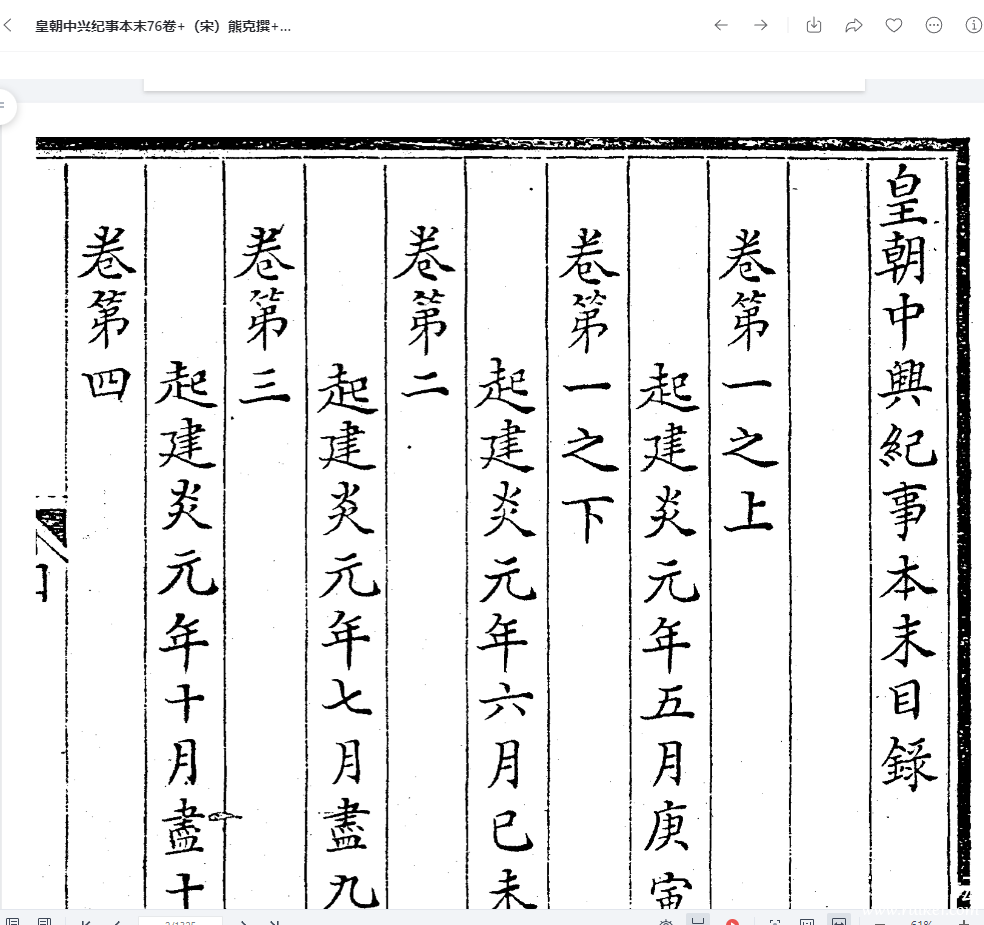 皇朝中兴纪事本末76卷+（宋）熊克撰+...
皇朝中興紀事本末目錄
卷第一之上
起建炎元年五月庚寅
卷第一之下
起建炎元年六月己未
卷第二
起建炎元年七月盡九
卷第三
起建炎元年十月盡十
卷第四
61%